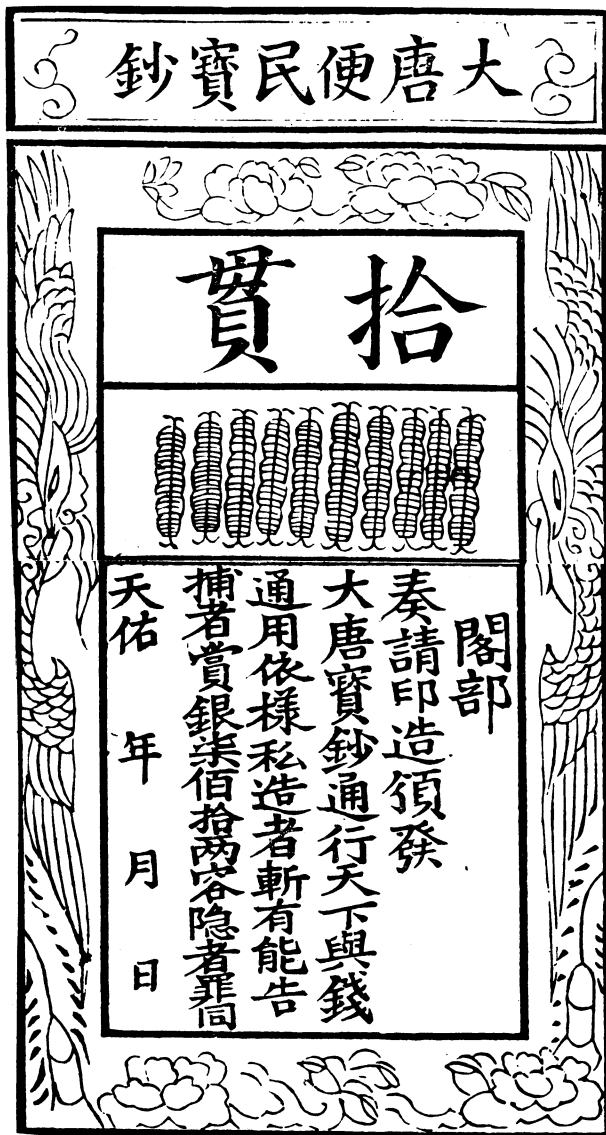 大唐便民寳鈔
拾貫
閣部
奏請印造頒發
大唐寳鈔通行天下與錢
通用依様私造者斬有能告
捕者賞銀柒佰拾两容隐者罪同
天佑 年 月 日